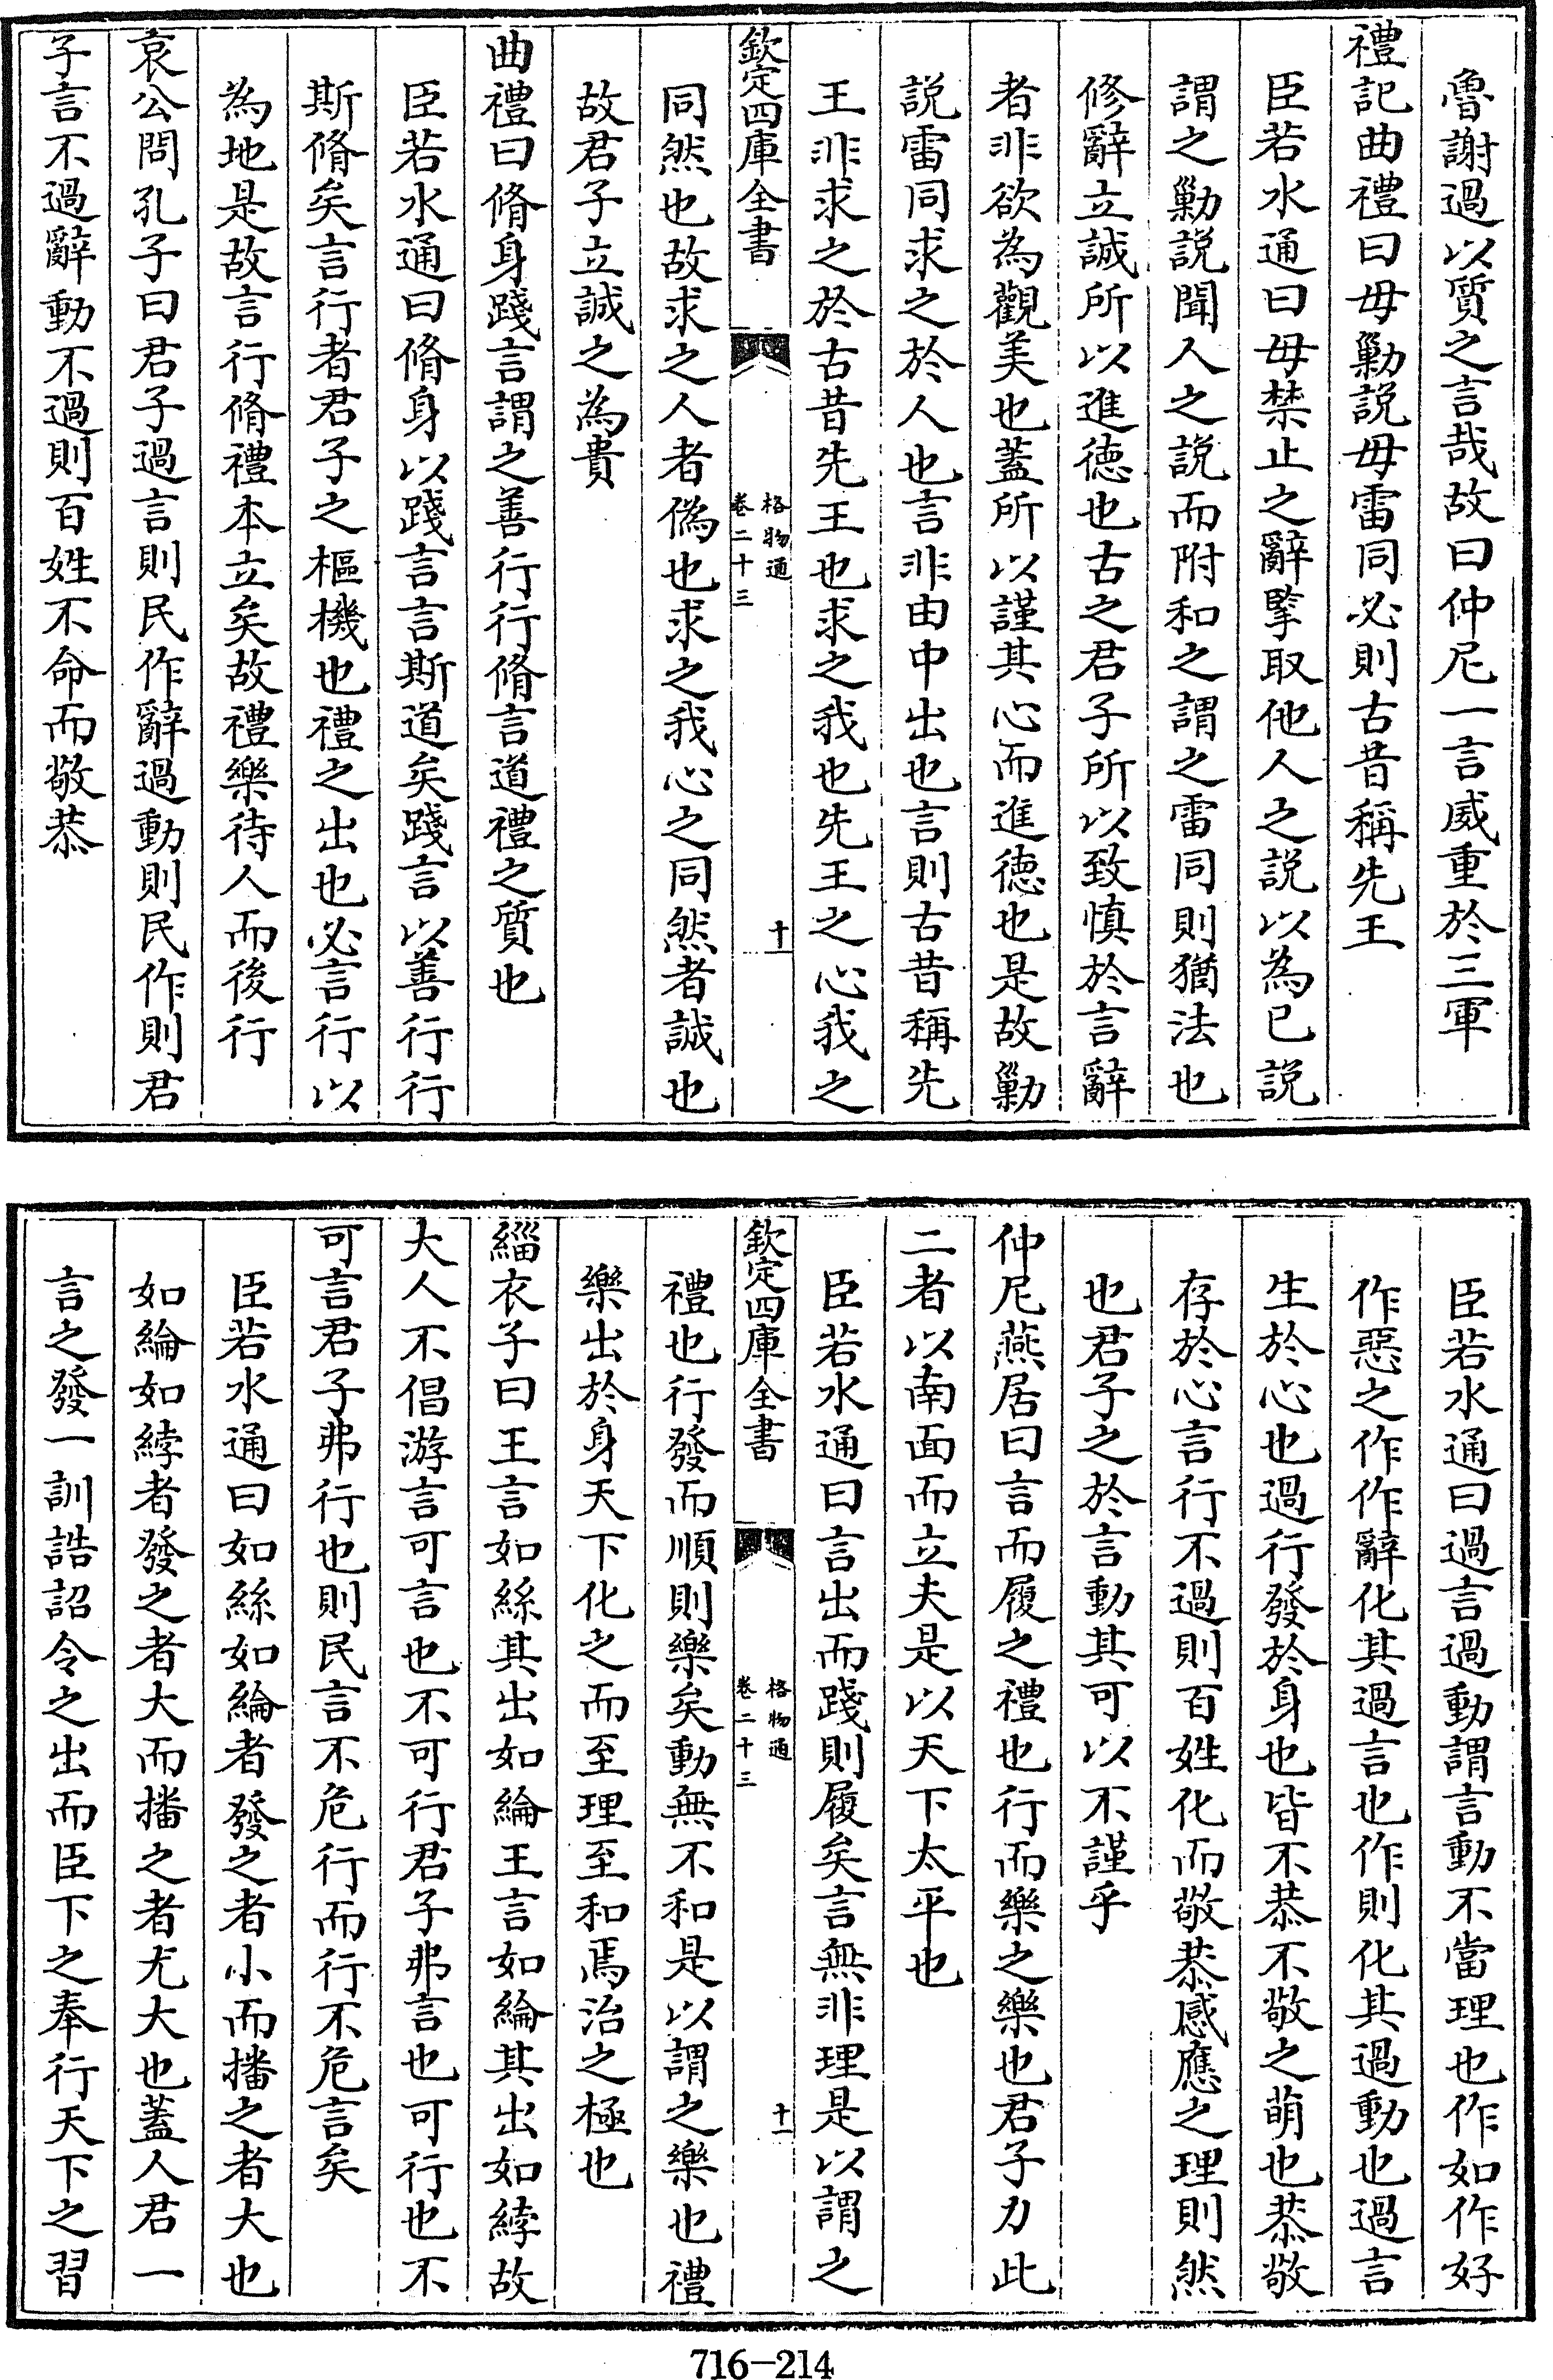 魯謝過以質之言哉故曰仲尼一言威重於三軍
禮記曲禮曰毋勦説毋雷同必則古昔稱先王
臣若水通曰毋禁止之辭擥取他人之説以為已説
謂之勦説聞人之説而附和之謂之雷同則猶法也
修辭立誠所以進徳也古之君子所以致慎於言辭
者非欲為觀美也蓋所以謹其心而進徳也是故勦
説雷同求之於人也言非由中出也言則古昔稱先
王非求之於古昔先王也求之我也先王之心我之
欽定四庫全書
格物通
卷二十三
十一
同然也故求之人者偽也求之我心之同然者誠也
故君子立誠之為貴
曲禮曰脩身踐言謂之善行行脩言道禮之質也
臣若水通曰脩身以踐言言斯道矣踐言以善行行
斯脩矣言行者君子之樞機也禮之出也必言行以
為地是故言行脩禮本立矣故禮樂待人而後行
哀公問孔子曰君子過言則民作辭過動則民作則君
子言不過辭動不過則百姓不命而敬恭
臣若水通曰過言過動謂言動不當理也作如作好
作惡之作作辭化其過言也作則化其過動也過言
生於心也過行發於身也皆不恭不敬之萌也恭敬
存於心言行不過則百姓化而敬恭感應之理則然
也君子之於言動其可以不謹乎
仲尼燕居曰言而履之禮也行而樂之樂也君子力此
二者以南面而立夫是以天下太平也
臣若水通曰言出而踐則履矣言無非理是以謂之
欽定四庫全書
格物通
卷二十三
十一
禮也行發而順則樂矣動無不和是以謂之樂也禮
樂出於身天下化之而至理至和焉治之極也
緇衣子曰王言如絲其出如綸王言如綸其出如綍故
大人不倡游言可言也不可行君子弗言也可行也不
可言君子弗行也則民言不危行而行不危言矣
臣若水通曰如絲如綸者發之者小而播之者大也
如綸如綍者發之者大而播之者尤大也蓋人君一
言之發一訓誥詔令之出而臣下之奉行天下之習
716-214